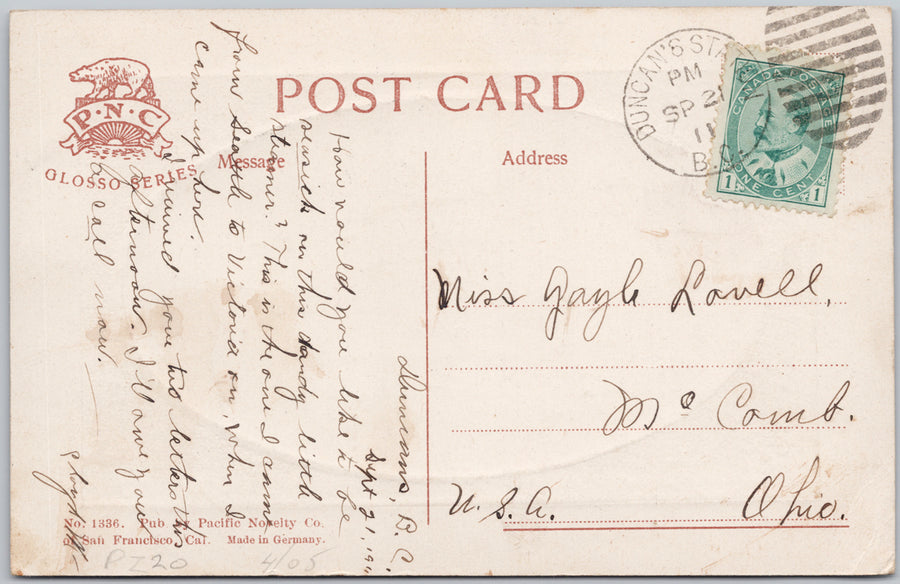 POST CARD
P·N·C
GLOSSO SERIES
Message
Address
DUNCAN'S STA
PM
SP 21
11
B.C.
CANADA POSTAGE
1 1
ONE CENT
Duncans, B.C.
Sept 21, 19
How would you like to be
seasick on this dandy little
steamer? This is the one I came
from Seattle to Victoria on, when I
came up here.
I received your two letters this
afternoon. I'll owe you
a call now.
Lloyd
Miss Gayle Lovell,
Mc Comb.
U.S.A. Ohio.
No. 1336. Pub by Pacific Novelty Co.
of San Francisco, Cal. Made in Germany.
PI20 4/05